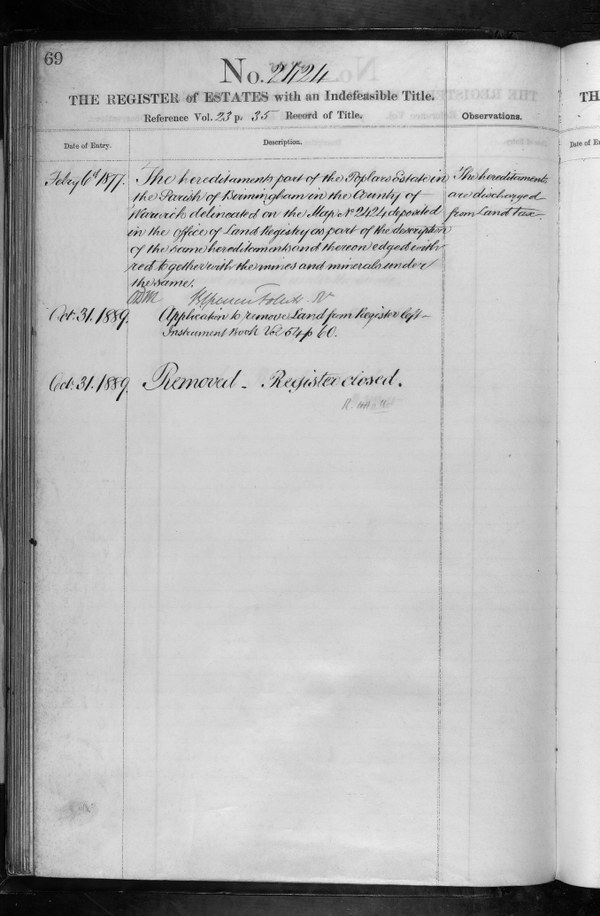 69
No. 2424
THE REGISTER of ESTATES with an Indefeasible Title.
Reference Vol. 23 p. 35 Record of Title.
Observations.
Date of Entry.
Description.
Feby 6th 1877.
The hereditaments part of the Poplars Estate in
the Parish of Birmingham in the County of
Warwick delineated on the Map No 2424 deposited
in the office of Land Registry as part of the description
of the same hereditaments and thereon edged with
red together with the mines and minerals under
the same.
The hereditaments
are discharged
from Land Tax.
Oct. 31. 1889.
Application to remove Land from Register left
Instrument Book Vol 54 p 60.
Oct. 31. 1889.
Removed - Register closed.
TH